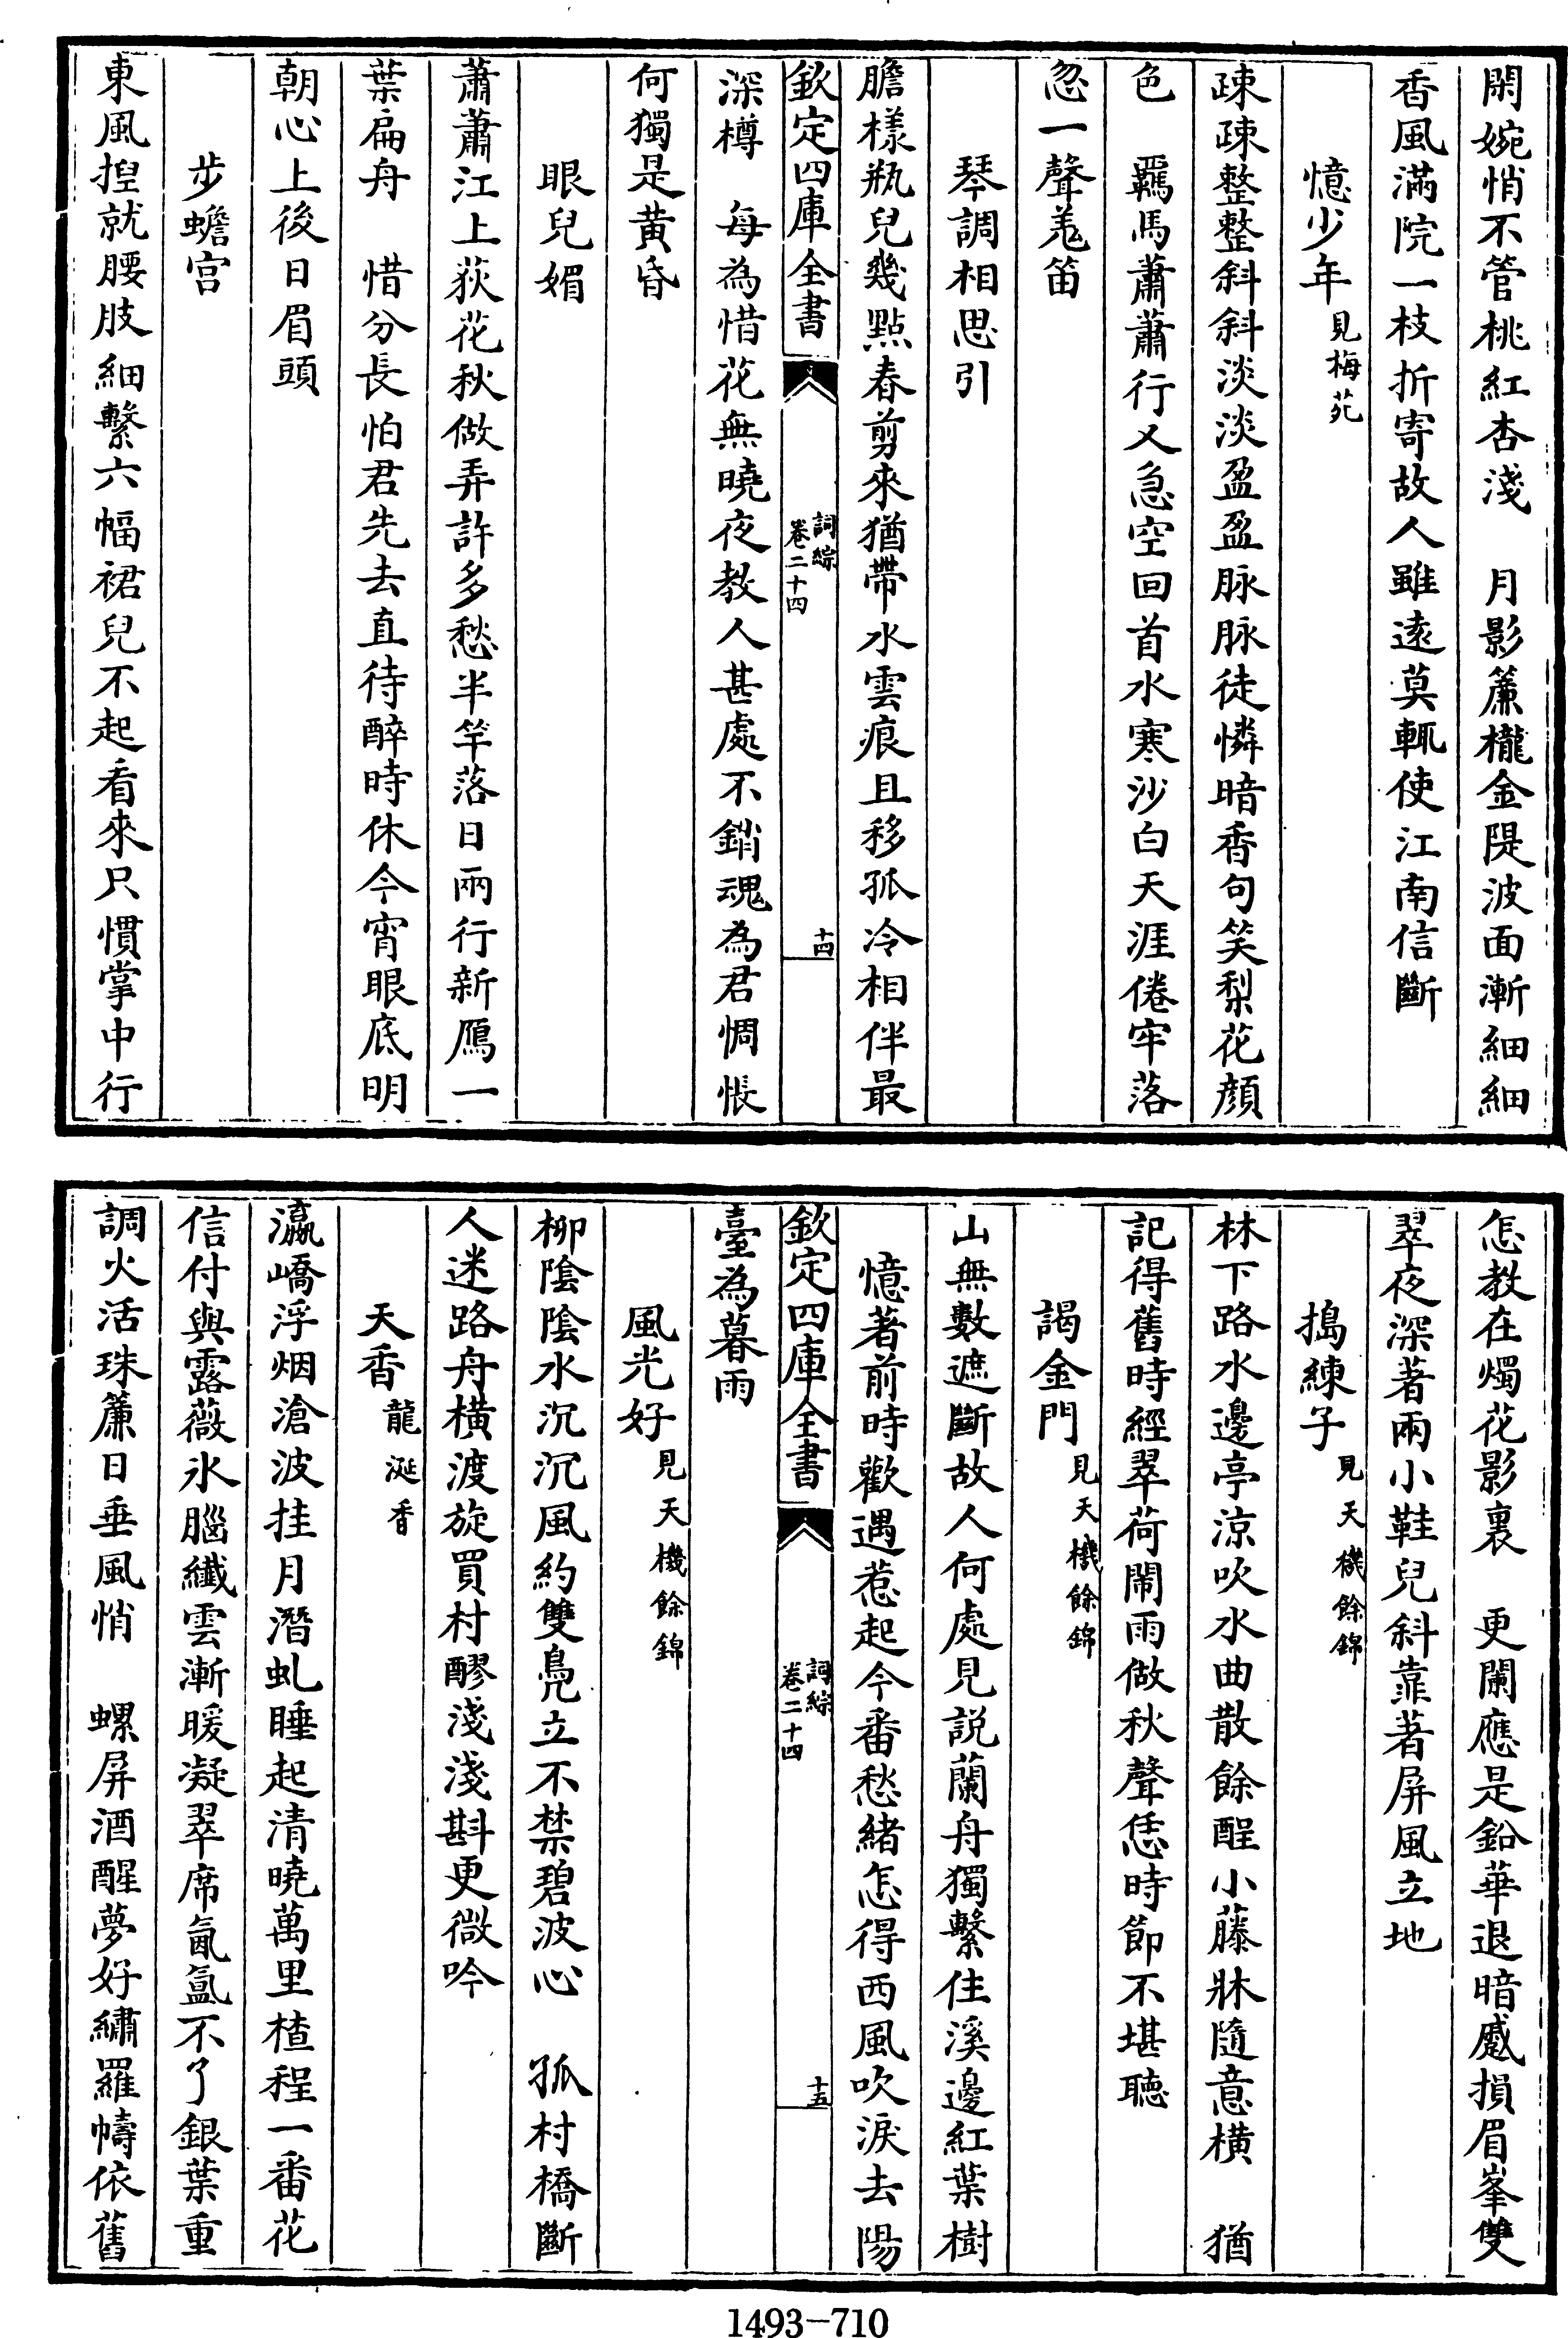 閑婉悄不管桃紅杏淺　月影簾櫳金隄波面漸細細
香風滿院一枝折寄故人雖遠莫輒使江南信斷
憶少年見梅苑
疎疎整整斜斜淡淡盈盈脉脉徒憐暗香句笑梨花顔
色　羈馬蕭蕭行又急空回首水寒沙白天涯倦牢落
忽一聲羌笛
琴調相思引
膽樣瓶兒幾點春剪來猶帶水雲痕且移孤冷相伴最
欽定四庫全書
詞綜
卷二十四
十四
深樽　每為惜花無曉夜教人甚處不銷魂為君惆悵
何獨是黄昏
眼兒媚
蕭蕭江上荻花秋做弄許多愁半竿落日兩行新鴈一
葉扁舟　惜分長怕君先去直待醉時休今宵眼底明
朝心上後日眉頭
步蟾宫
東風揑就腰肢細繫六幅裙兒不起看來只慣掌中行
怎教在燭花影裏　更闌應是鉛華退暗蹙損眉峯雙
翠夜深著兩小鞋兒斜靠著屏風立地
搗練子見天機餘錦
林下路水邊亭涼吹水曲散餘酲小藤牀隨意横　猶
記得舊時經翠荷鬧雨做秋聲恁時節不堪聽
謁金門見天機餘錦
山無數遮斷故人何處見説蘭舟獨繫住溪邊紅葉樹
憶著前時歡遇惹起今番愁緒怎得西風吹淚去陽
欽定四庫全書
詞綜
卷二十四
十五
臺為暮雨
風光好見天機餘錦
柳陰陰水沉沉風約雙鳧立不禁碧波心　孤村橋斷
人迷路舟横渡旋買村醪淺淺斟更微吟
天香龍涎香
瀛嶠浮烟滄波挂月潛虬睡起清曉萬里楂程一番花
信付與露薇氷腦纖雲漸暖凝翠席氤氲不了銀葉重
調火活珠簾日垂風悄　螺屏酒醒夢好繡羅幬依舊
1493-710